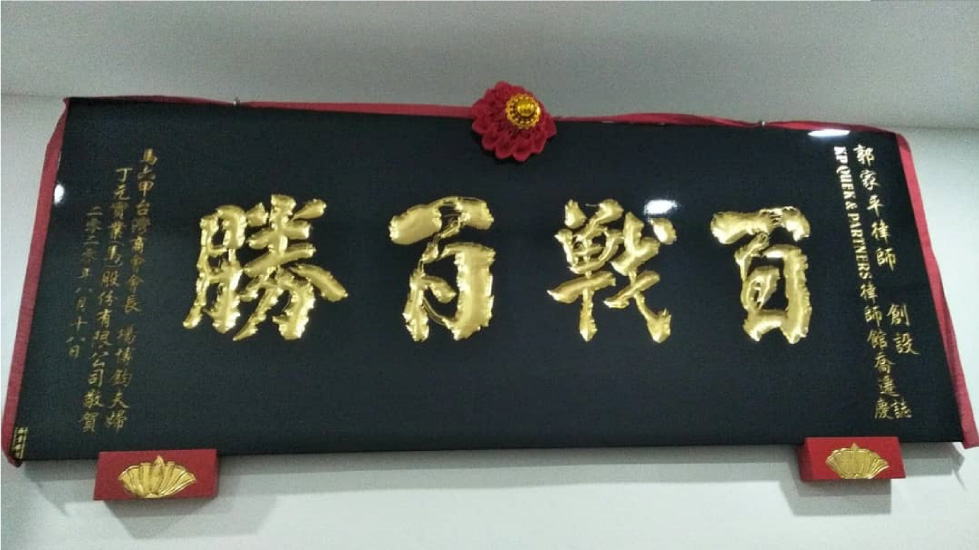 郭家平律師 創設
KP QUEK & PARTNERS律師館喬遷慶誌
百戰百勝
馬六甲台灣商會會長 楊博鈞夫婦
丁元實業馬股份有限公司敬賀
二零二零年八月十八日